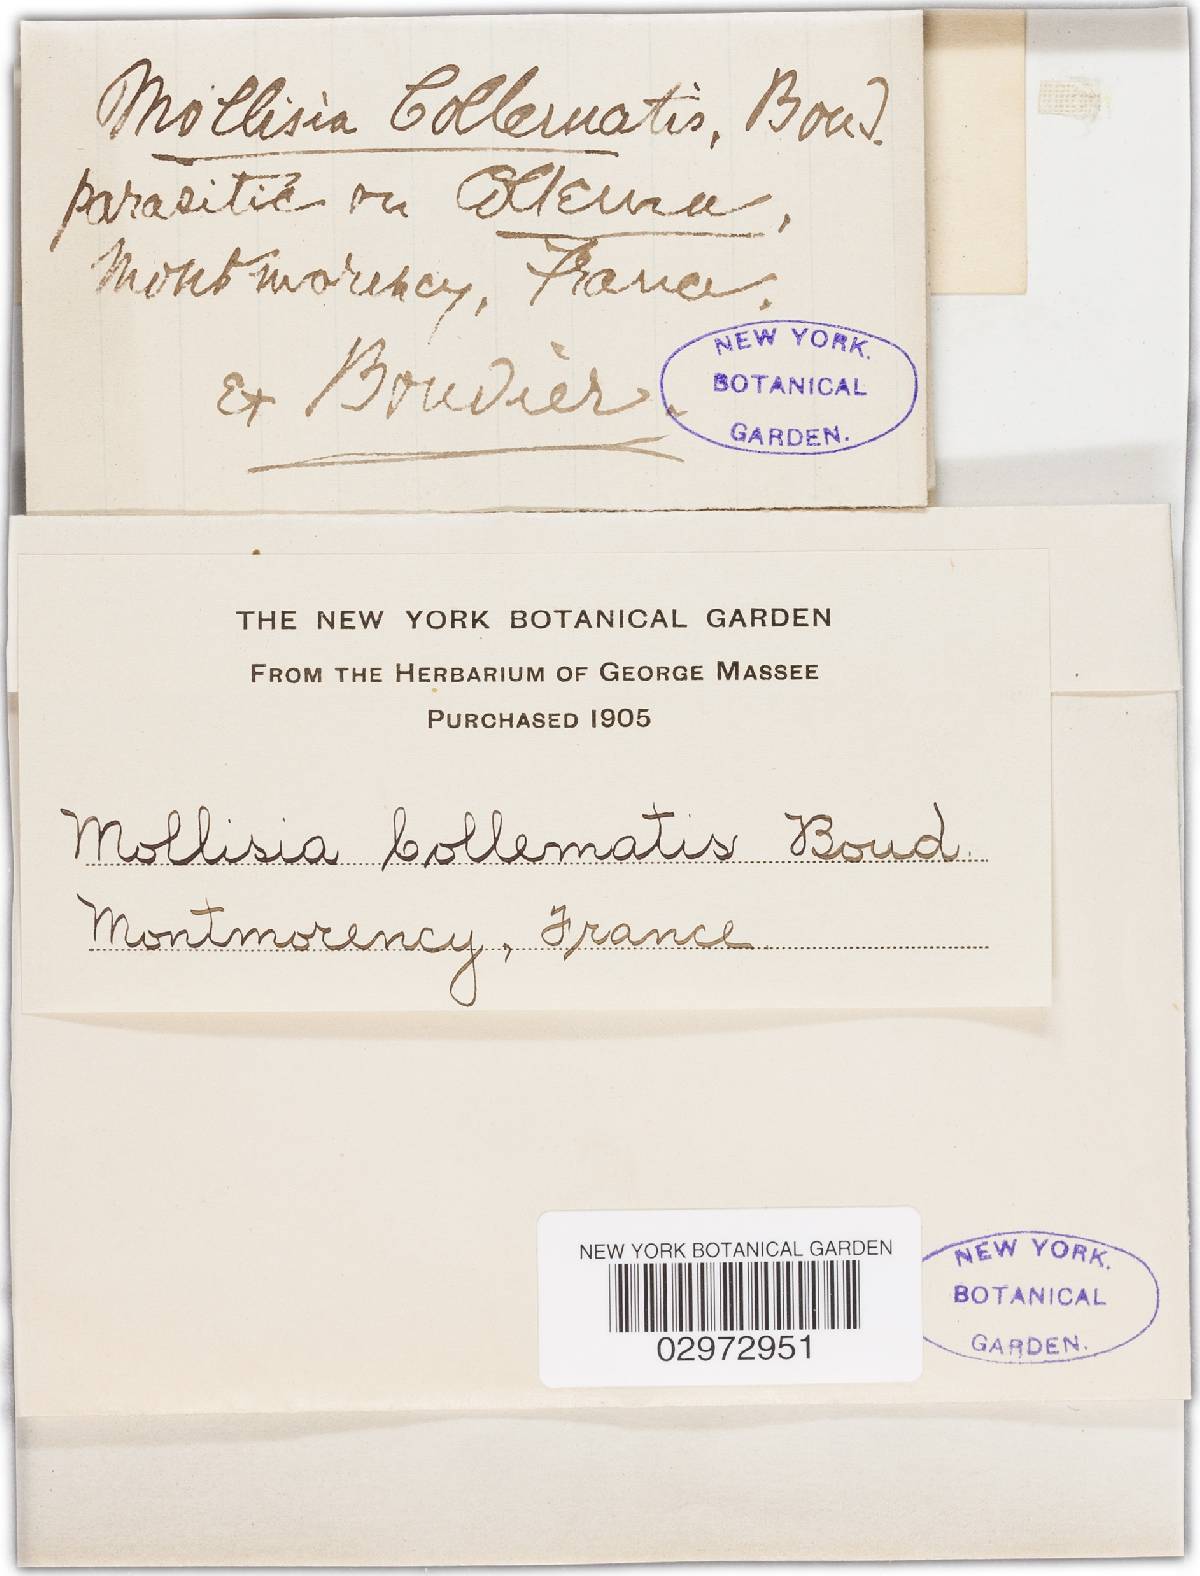 Mollisia Collematis, Boud.
parasitic on Collema,
Montmorency, France.
ex Boudier.
NEW YORK.
BOTANICAL
GARDEN.
THE NEW YORK BOTANICAL GARDEN
FROM THE HERBARIUM OF GEORGE MASSEE
PURCHASED 1905
Mollisia Collematis Boud.
Montmorency, France
NEW YORK BOTANICAL GARDEN
02972951
NEW YORK.
BOTANICAL
GARDEN.